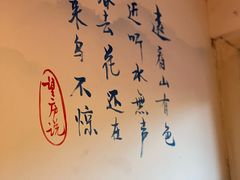 遠看山有色
近听水無声
春去花还在
来鸟不惊
望床说